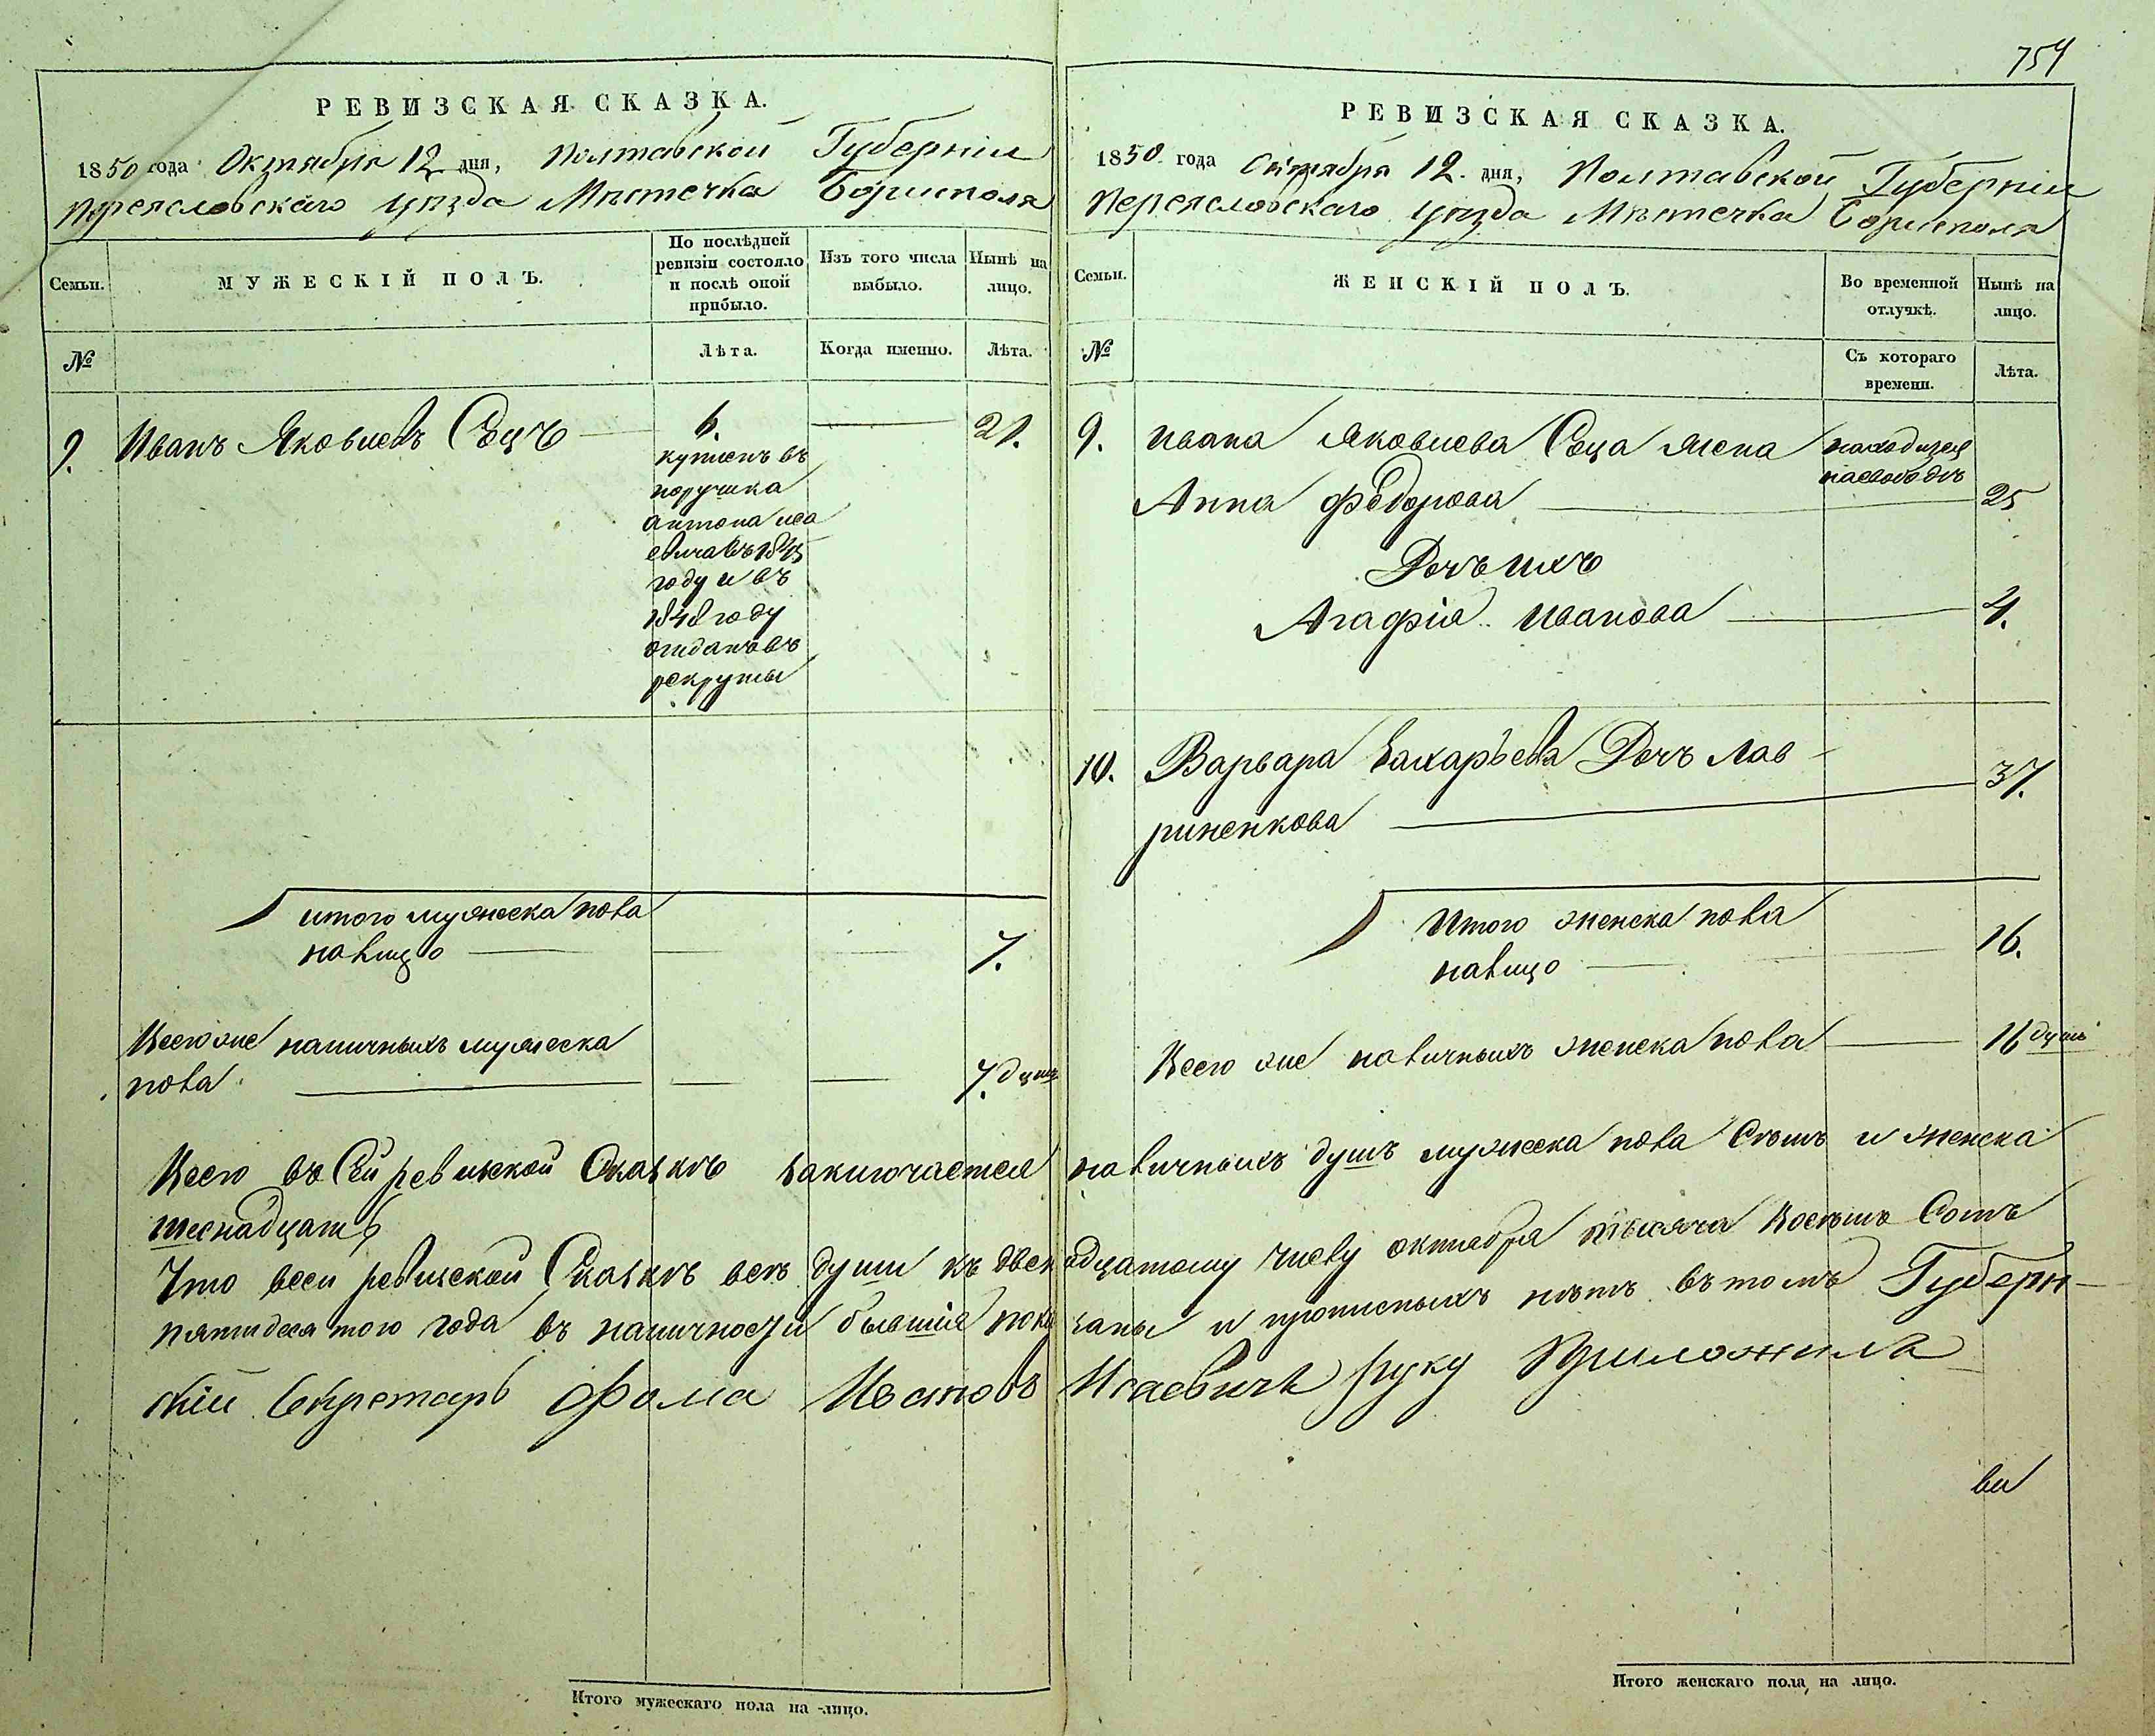 754
РЕВИЗСКАЯ СКАЗКА.
1850 года Октября 12 дня, Полтавской Губерніи
Переясловскаго уѣзда Мѣстечка Борисполя
Семьи.
МУЖЕСКІЙ ПОЛЪ.
По послѣдней ревизіи состояло и послѣ оной прибыло.
Изъ того числа выбыло.
Нынѣ на лицо.
№
Лѣта.
Когда именно.
Лѣта.
9. Иванъ Яковлевъ Сѣцъ 6. 21.
купленъ въ
поручика
антона иса
евича въ 1845
году и въ
1848 году
отданъ въ
рекруты
итого мужеска пола
налицо 7.
Всего же наличныхъ мужеска
пола 7. душъ
РЕВИЗСКАЯ СКАЗКА.
1850 года Октября 12. дня, Полтавской Губерніи
Переясловскаго уѣзда Мѣстечка Борисполя
Семьи.
ЖЕНСКІЙ ПОЛЪ.
Во временной отлучкѣ.
Нынѣ на лицо.
№
Съ котораго времени.
Лѣта.
9. Ивана Яковлева Сѣца жена находится
Анна Федорова 25
Дочь ихъ
Агафія Иванова 4.
10. Варвара Захарьева Дочь Лав
риненкова 37.
Итого женска пола
налицо 16.
Всего же наличныхъ женска пола 16 душъ
Всего въ Сей ревизской Сказкѣ заключается наличныхъ душъ мужеска пола Семь и женска
шеснадцать
Что всеи ревизской Сказкѣ всѣ души къ двенадцатому числу октября тысяча Восемь Сотъ
пятидесятого года въ наличности бывшія показаны и прописныхъ нѣтъ въ томъ Губерн-
скій Секретарь Фома Ивановъ Исаевичъ руку Приложила
Итого мужескаго пола на лицо.
Итого женскаго пола, на лицо.